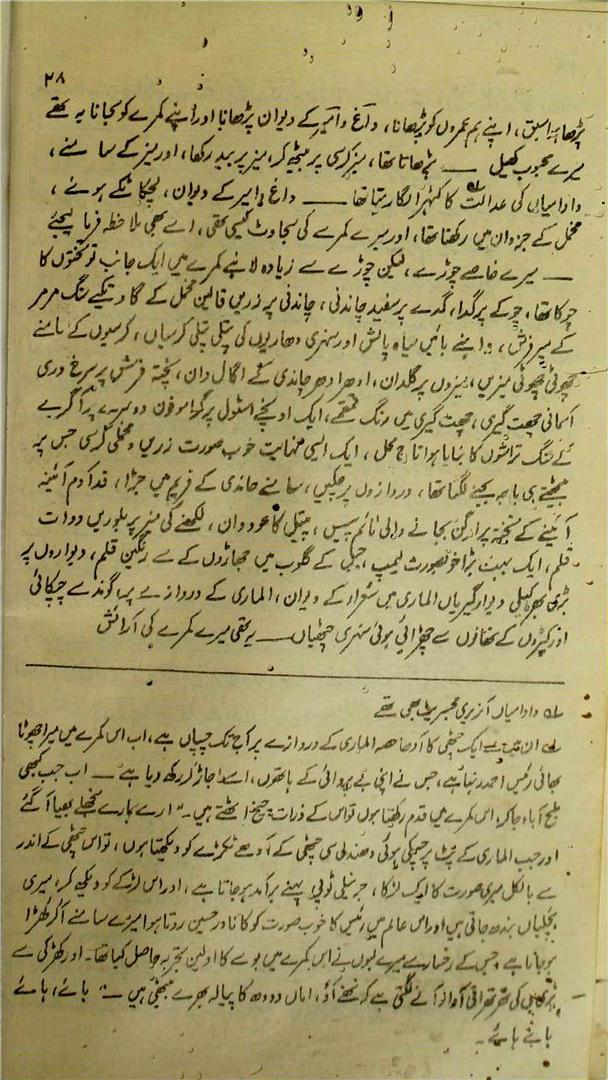 ۲۸
پڑھا ہوا سبق، اپنے ہم عمروں کو پڑھانا، داغ و امیر کے دیوان پڑھانا اور اپنے کمرے کو سجانا یہ تھے
میرے محبوب کھیل ـــــ پڑھاتا تھا، میز کرسی پر بیٹھ کر، میز پر بید رکھا، اور میز کے سامنے،
دادا میاں کی عدالت کا کٹہرا لگا رہتا تھا ـــــ داغ و امیر کے دیوان، لچکا ٹکے ہوئے،
مخمل کے جزدان میں رکھتا تھا، اور میرے کمرے کی سجاوٹ کیسی تھی، اسے بھی ملاحظہ فرما لیجئے
ـــــ میرے خاصے چوڑے، لیکن چوڑے سے زیادہ لانبے کمرے میں ایک جانب تو تختوں کا
چوکا تھا، چوکے پر گدا، گدے پر سفید چاندنی، چاندنی پر زریں قالین مخمل کے گاؤ تکیے سنگ مرمر
کے میر فرش، داہنے بائیں سیاہ پالش اور سنہری دھاریوں کی پتلی پتلی کرسیاں، کرسیوں کے سامنے
چھوٹی چھوٹی میزیں، میزوں پر گلدان، ادھر ادھر چاندی کے اگال دان، پختہ فرش پر سرخ دری
آسمانی چھت گیری، چھت گیری میں رنگ قمقمے، ایک اونچے اسٹول پر گراموفون دوسرے پر آگرے
کے سنگ تراشوں کا بنایا ہوا تاج محل، ایک ایسی نہایت خوب صورت زریں و مخملی کرسی جس پر
بیٹھتے ہی باجہ بجنے لگتا تھا، دروازوں پر چلمنیں، سامنے چاندی کے فریم میں جڑا، قد آدم آئینہ
آئینے کے تختہ پر ارگن بجانے والی ٹائم پیس، پیتل کا عود دان، لکھنے کی میز پر بلوریں دوات
قلم، ایک بہت بڑا خوبصورت لیمپ، جس کے گلوب میں جھاڑوں کے سے رنگین قلم، دیواروں پر
بڑی بھڑکیلی دیوار گیریاں الماری میں شعراء کے دیوان، الماری کے دروازے پر، گوند سے چپکائی
اور کپڑوں کے تھانوں سے چھڑائی ہوئی سنہری چٹھیاں ـــــ یہ تھی میرے کمرے کی آرائش
لہ دادا میاں آنریری مجسٹریٹ بھی تھے
ان میں سے ایک چٹھی کا آدھا حصہ الماری کے دروازے پر آج تک چسپاں ہے، اب اس کمرے میں میرا چھوٹا
بھائی رئیس احمد رہتا ہے، جس نے اپنی بے پروائی کے ہاتھوں، اسے اجاڑ کر رکھ دیا ہے ـــــ اب جب کبھی
ملیح آباد جا کر، اس کمرے میں قدم رکھتا ہوں تو اس کے ذرات چیخ اٹھتے ہیں۔ "ارے ہارے منجھلے بھیا آ گئے
اور جب الماری کے پٹ پر چپکی ہوئی دھندلی سی چٹھی کے آدھے ٹکڑے کو دیکھتا ہوں، تو اس چٹھی کے اندر
سے بالکل میری صورت کا ایک لڑکا، جرنیلی ٹوپی پہنے برآمد ہو جاتا ہے، اور اس لڑکے کو دیکھ کر، میری
ہچکیاں بندھ جاتی ہیں اور اس عالم میں رئیس کا خوب صورت کوکا نادر حسین روتا ہوا میرے سامنے آ کر کھڑا
ہو جاتا ہے، جس کے رخسار سے میرے لبوں نے اس کمرے میں بوسے کا اولین تجربہ حاصل کیا تھا۔ اور کھڑکی سے
کی تھرتھراتی آواز آنے لگتی ہے کہ ننھے آؤ، اماں دودھ کا پیالہ بھرے بیٹھی ہیں ـــ" ہائے، ہائے
ہائے ہائے۔